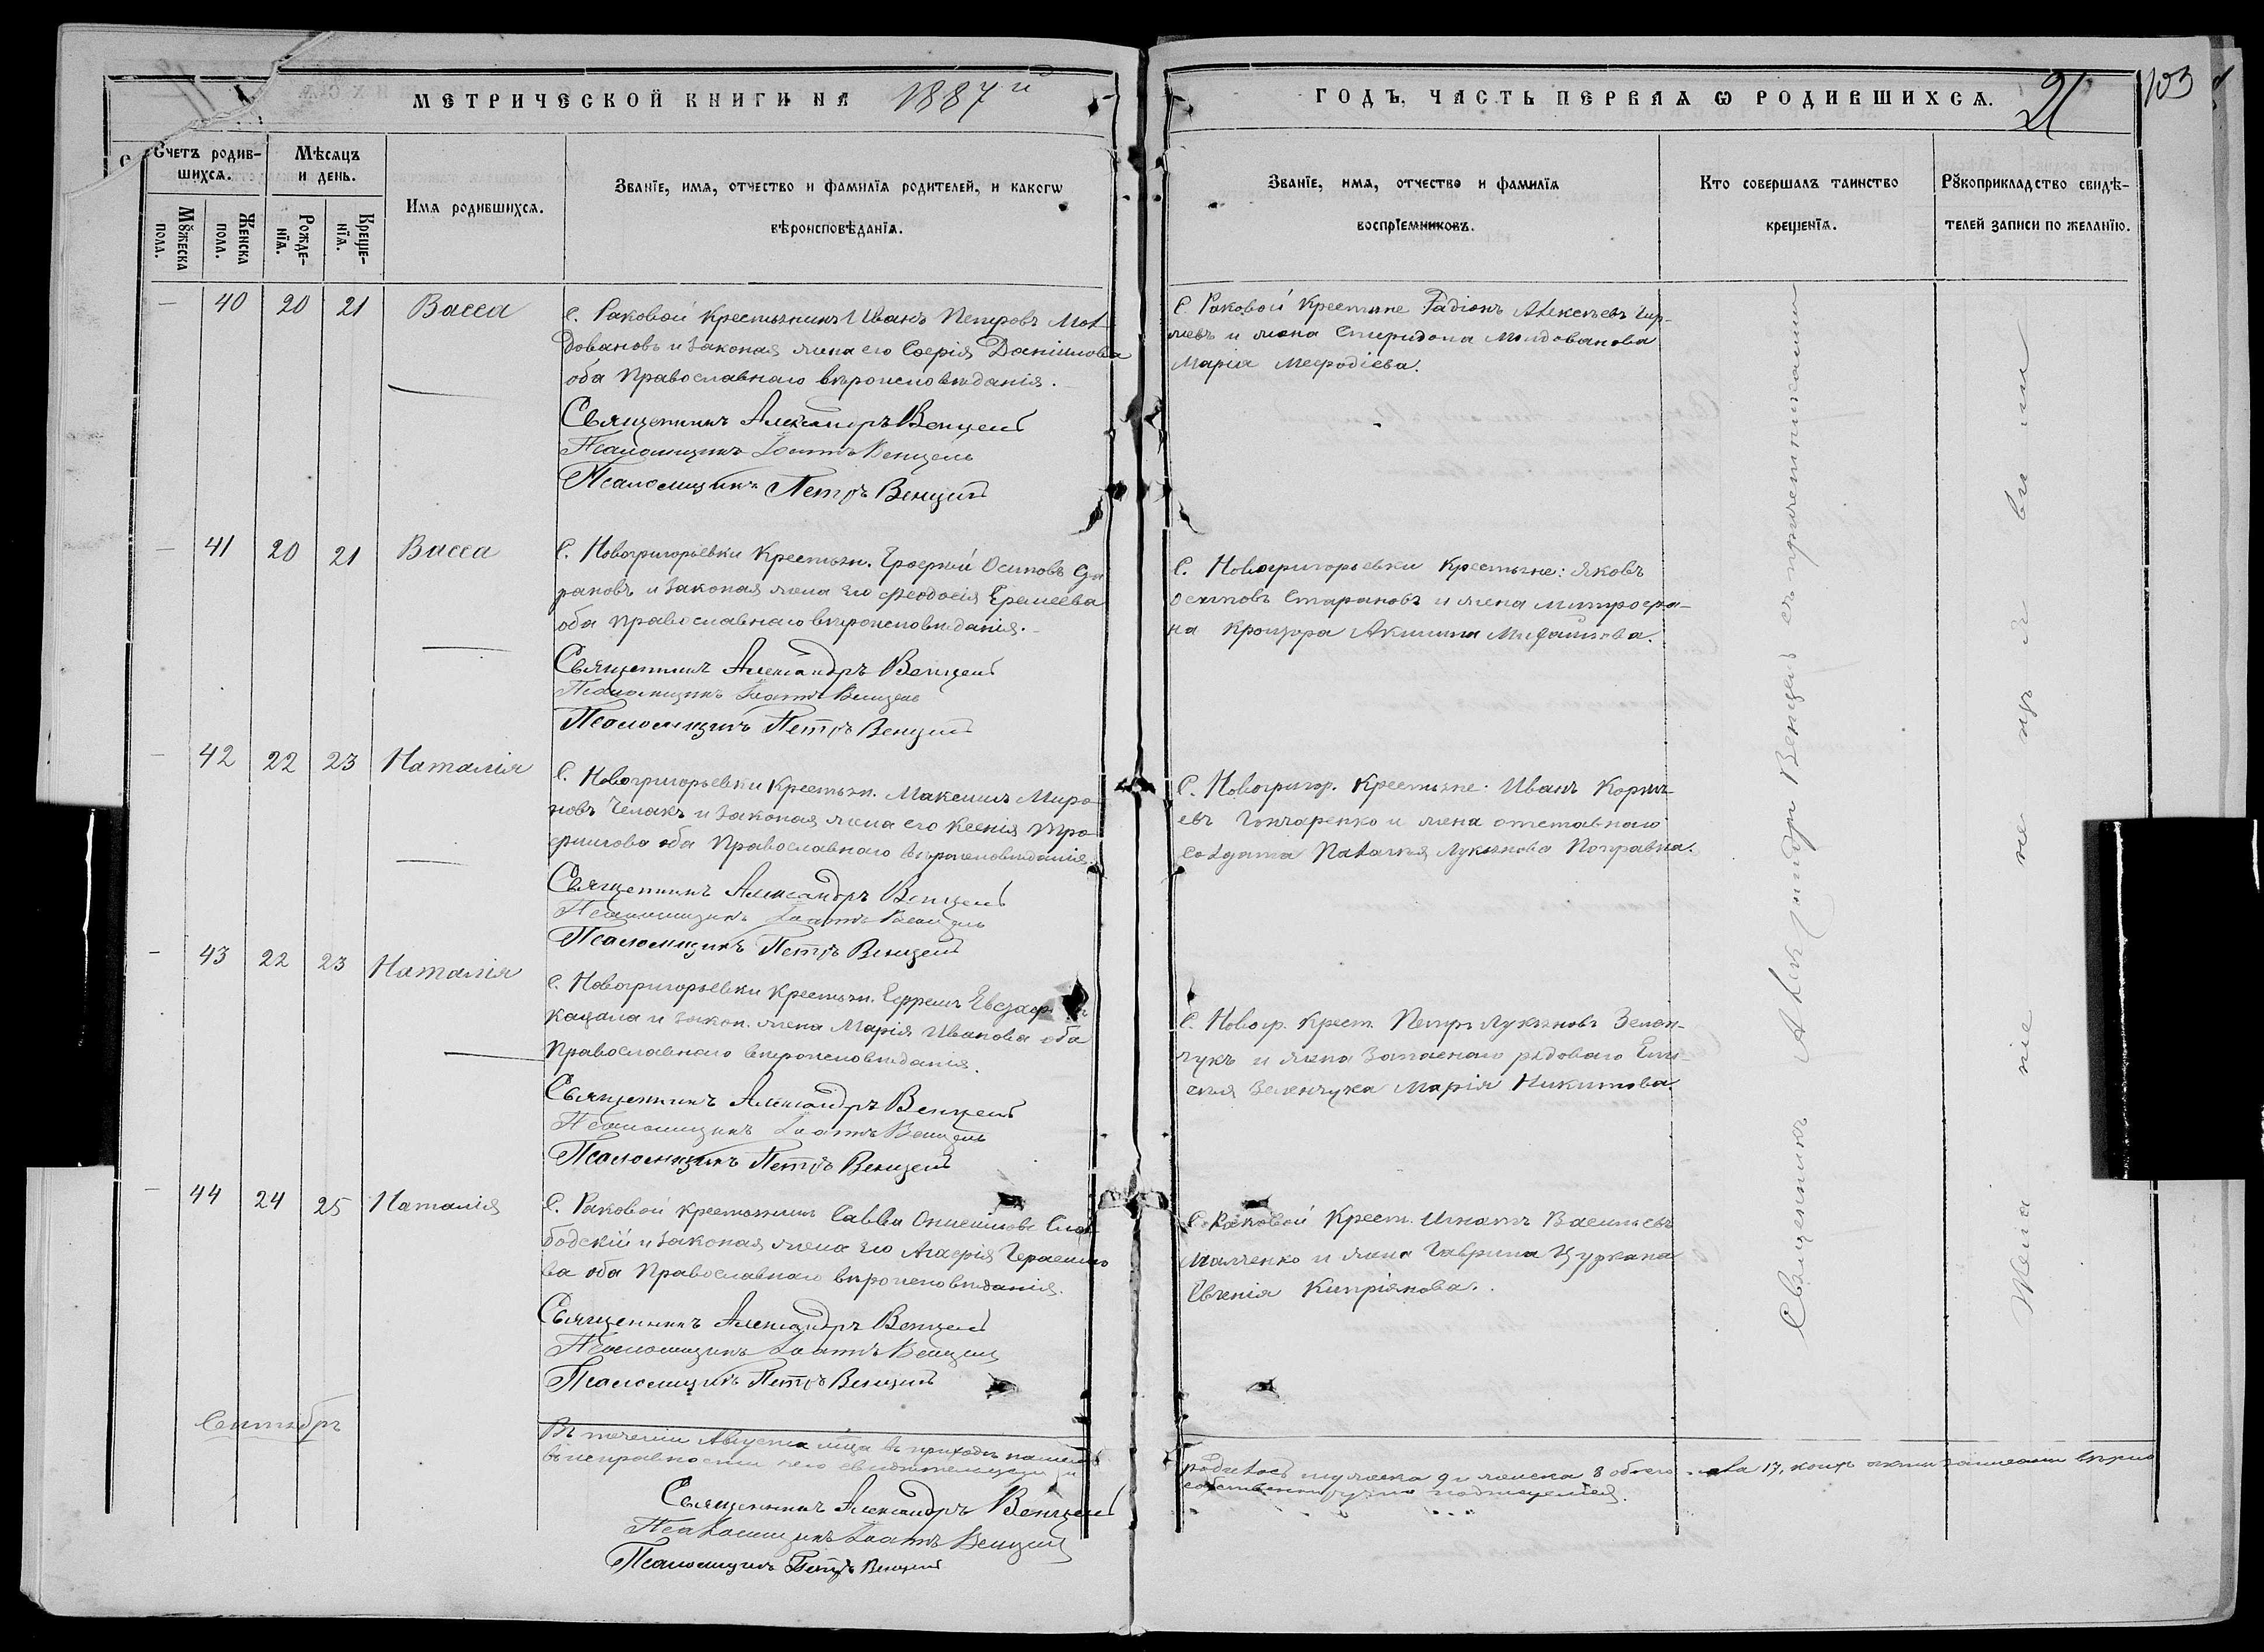 МЕТРИЧЕСКОЙ КНИГИ НА 1887 й
ГОДЪ, ЧАСТЬ ПЕРВАЯ Ѡ РОДИВШИХСЯ.
21
103
Счетъ родив-
шихся.
Мѣсяцъ
и день.
Мꙋжеска
пола.
Женска
пола.
Рожде-
нїя.
Креще-
нїя.
Имя родившихся.
Званїе, имя, отчество и фамилїя родителей, и какогѡ
вѣроисповѣданїя.
Званїе, имя, отчество и фамилїя
воспрїемниковъ.
Кто совершалъ таинство
крещенїя.
Рꙋкоприкладство свидѣ-
телей записи по желанїю.
— 40 20 21 Васса
С. Раковой крестьянинъ Иванъ Петровъ Мол-
довановъ и законая жена его Софія Даніилова
оба Православнаго вѣроисповѣданія.
Священникъ Александръ Венцель
Псаломщикъ Венцель
Псаломщикъ Петръ Венцель
С. Раковой Крестьяне Радіонъ Алексѣевъ
и жена Спиридона Молдованова
Марія Мефодіева.
— 41 20 21 Васса
С. Новогригорьевки Крестьян. Трофимъ Осиповъ
рановъ и законая жена его Феодосія Еремеева
оба православнаго вѣроисповѣданія.
Священникъ Александръ Венцель
Псаломщикъ Венцель
Псаломщикъ Петръ Венцель
С. Новогригорьевки Крестьяне: Яковъ
Осиповъ Старановъ и жена Митрофа-
на Акилина Михайлова.
— 42 22 23 Наталія
С. Новогригорьевки Крестьян. Максимъ Миро-
новъ Челакъ и законая жена его Ксенія Тро-
фимова оба Православнаго вѣроисповѣданія.
Священникъ Александръ Венцель
Псаломщикъ Венцель
Псаломщикъ Петръ Венцель
С. Новогригор. Крестьяне: Иванъ Корнѣ-
евъ Гончаренко и жена отставнаго
солдата Лукьянова
— 43 22 23 Наталія
С. Новогригорьевки Крестьян. Ефремъ
и закон. жена Марія Иванова оба
Православнаго вѣроисповѣданія.
Священникъ Александръ Венцель
Псаломщикъ Венцель
Псаломщикъ Петръ Венцель
С. Новогр. Крест. Петръ Лукьяновъ Зелен-
чукъ и жена запаснаго рядоваго
Зеленчука Марія Никитова.
— 44 24 25 Наталія
С. Раковой крестьянинъ Савва Онисимовъ Сло-
бодскій и законая жена его Агафія Герасимо
ва оба Православнаго вѣроисповѣданія.
Священникъ Александръ Венцель
Псаломщикъ Венцель
Псаломщикъ Петръ Венцель
С. Раковой Крест. Игнатъ Васильевъ
и жена Гаврила Цуркана
Евгенія Кипріянова.
Священникъ Александръ Венцель съ причетниками
Желанія не изъявили
Сентябрь
Въ теченіи Августа мѣсца въ приходѣ нашемъ родилось мужеска 9 и женска 8 обоего пола 17, коихъ
въ исправности чего свидѣтельствуемъ и собственноручно подписуемся.
Священникъ Александръ Венцель
Псаломщикъ Венцель
Псаломщикъ Петръ Венцель